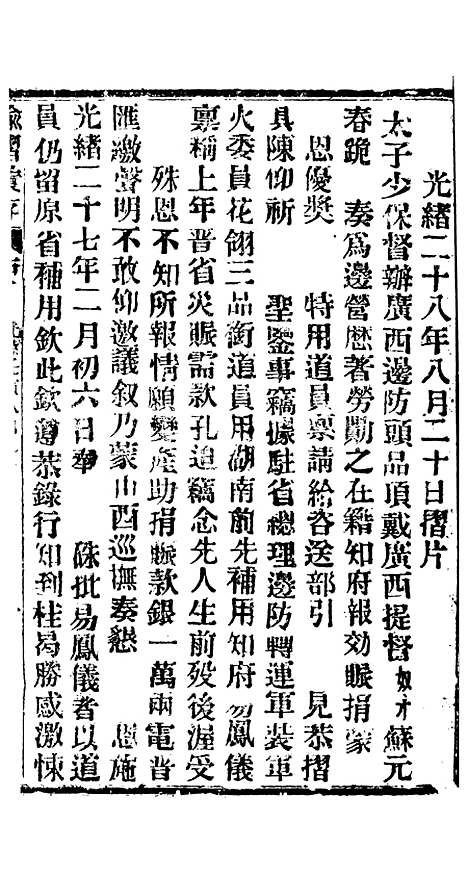 光緒二十八年八月二十日摺片
太子少保督辦廣西邊防頭品頂戴廣西提督奴才蘇元
春跪　奏爲邊營歷著勞勩之在籍知府報効賑捐蒙
恩優獎　特用道員稟請給咨送部引　見恭摺
具陳仰祈　聖鑒事竊據駐省總理邊防轉運軍裝軍
火委員花翎三品銜道員用湖南前先補用知府易鳳儀
稟稱上年晋省災賑需款孔迫竊念先人生前歿後渥受
殊恩不知所報情願變產助捐賑款銀一萬兩電晋
匯繳聲明不敢仰邀議叙乃蒙山西巡撫奏懇　恩施
光緒二十七年二月初六日奉　硃批易鳳儀着以道
員仍留原省補用欽此欽遵恭錄行知到桂曷勝感激悚